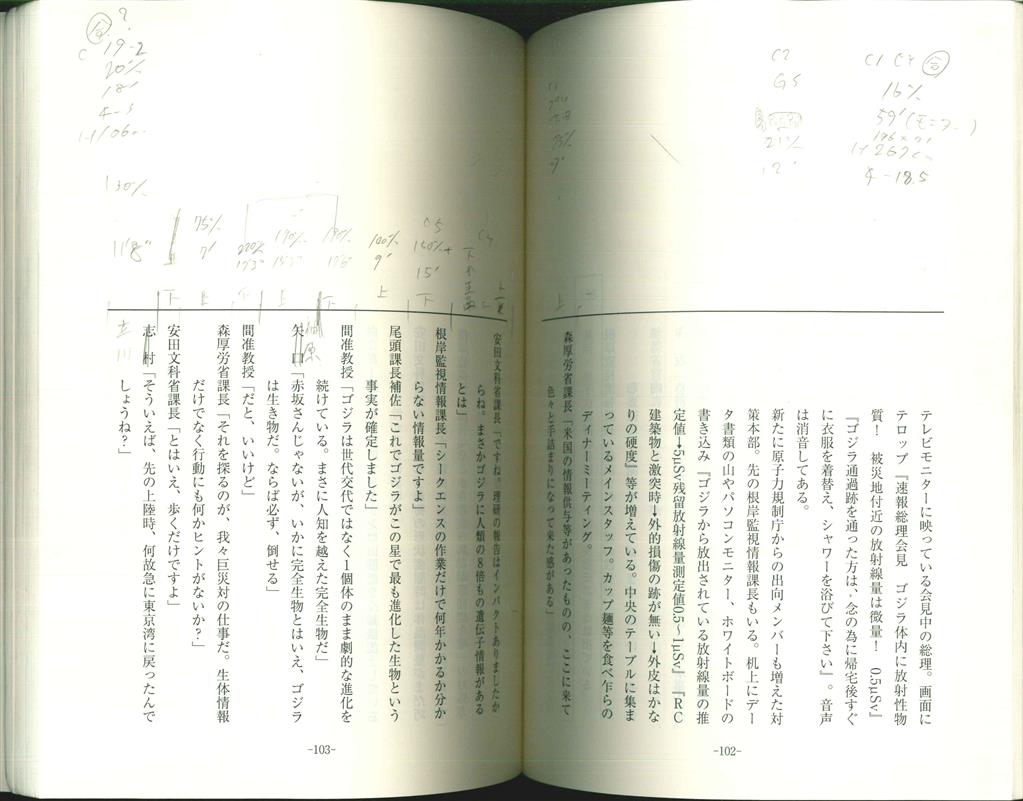 テレビモニターに映っている会見中の総理。画面に
テロップ『速報総理会見　ゴジラ体内に放射性物
質！　被災地付近の放射線量は微量！　0.5μSv』
『ゴジラ通過跡を通った方は、念の為に帰宅後すぐ
に衣服を着替え、シャワーを浴びて下さい』。音声
は消音してある。
新たに原子力規制庁からの出向メンバーも増えた対
策本部。先の根岸監視情報課長もいる。机上にデー
タ書類の山やパソコンモニター、ホワイトボードの
書き込み『ゴジラから放出されている放射線量の推
定値→5μSv残留放射線量測定値0.5〜1μSv』『RC
建築物と激突時→外的損傷の跡が無い→外皮はかな
りの硬度』等が増えている。中央のテーブルに集ま
っているメインスタッフ。カップ麺等を食べ乍らの
ディナーミーティング。
森厚労省課長「米国の情報供与等があったものの、ここに来て
色々と手詰まりになって来た感がある」
-102-
安田文科省課長「ですね。理研の報告はインパクトありましたか
らね。まさかゴジラに人類の8倍もの遺伝子情報がある
とは」
根岸監視情報課長「シークエンスの作業だけで何年かかるか分か
らない情報量ですよ」
尾頭課長補佐「これでゴジラがこの星で最も進化した生物という
事実が確定しました」
間准教授「ゴジラは世代交代ではなく1個体のまま劇的な進化を
続けている。まさに人知を越えた完全生物だ」
矢　口「赤坂さんじゃないが、いかに完全生物とはいえ、ゴジラ
は生き物だ。ならば必ず、倒せる」
間准教授「だと、いいけど」
森厚労省課長「それを探るのが、我々巨災対の仕事だ。生体情報
だけでなく行動にも何かヒントがないか？」
安田文科省課長「とはいえ、歩くだけですよ」
志　村「そういえば、先の上陸時、何故急に東京湾に戻ったんで
しょうね？」
-103-
C1 C2
16%
59'(モニター)
4-18.5
C2
GS
21%
C5
150%+
15'
下
100%
9'
上
190%
下
190%
上
220%
75%
7'
上
130%
11'8"
下
立川
19-2
20%
18'
4-5